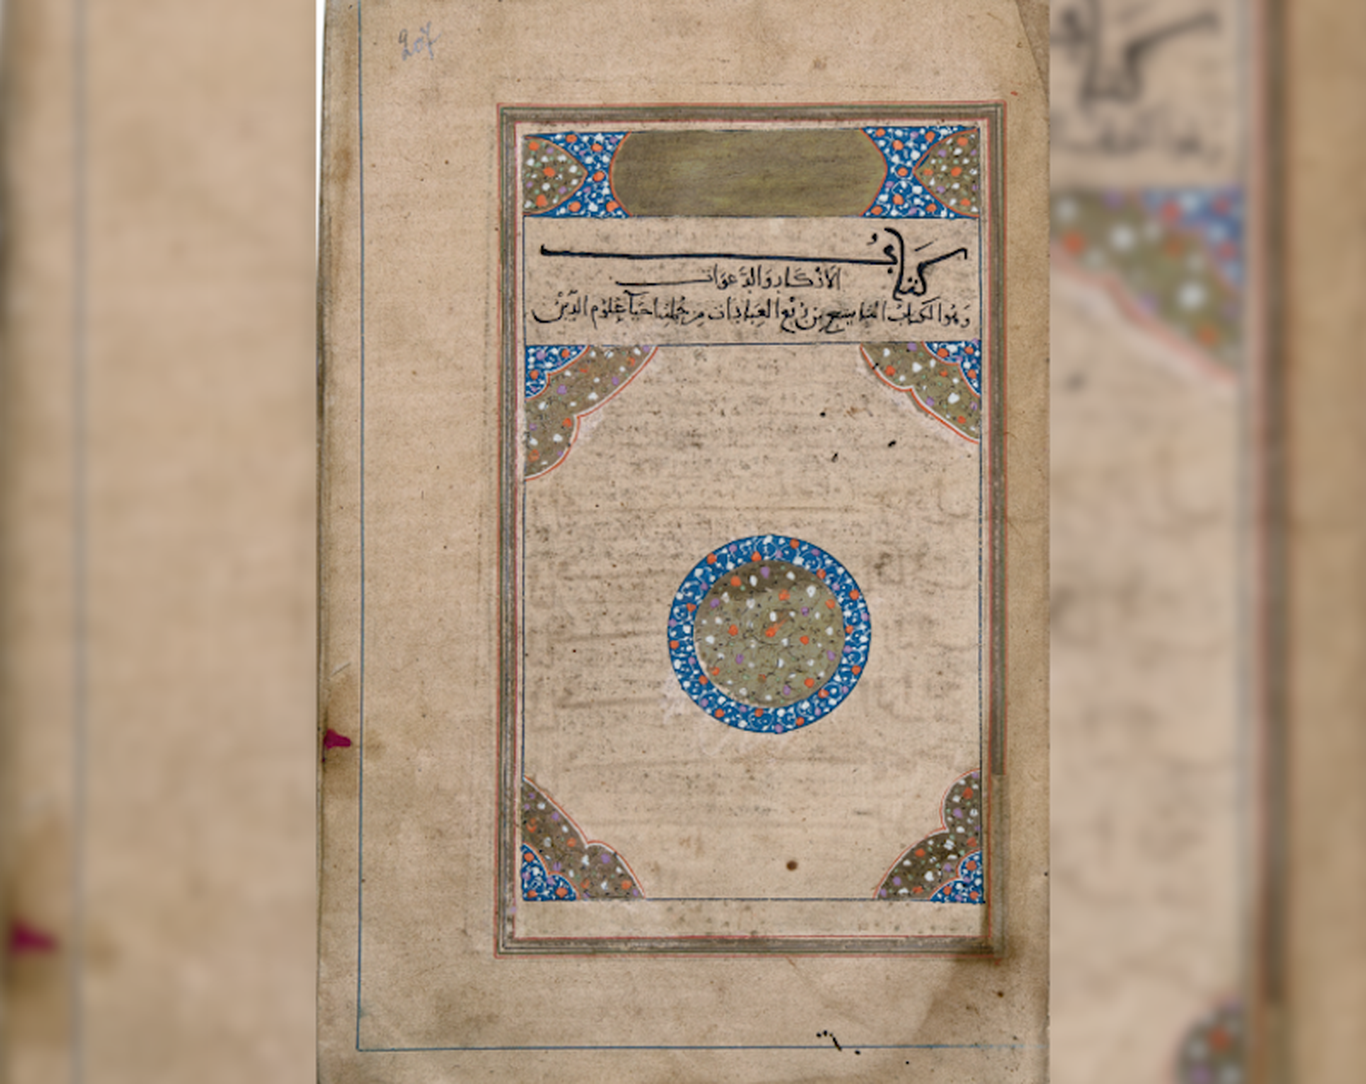 كتاب
الأذكار والدعوات
وهو الكتاب التاسع من ربع العبادات من جملة احيآ علوم الدين